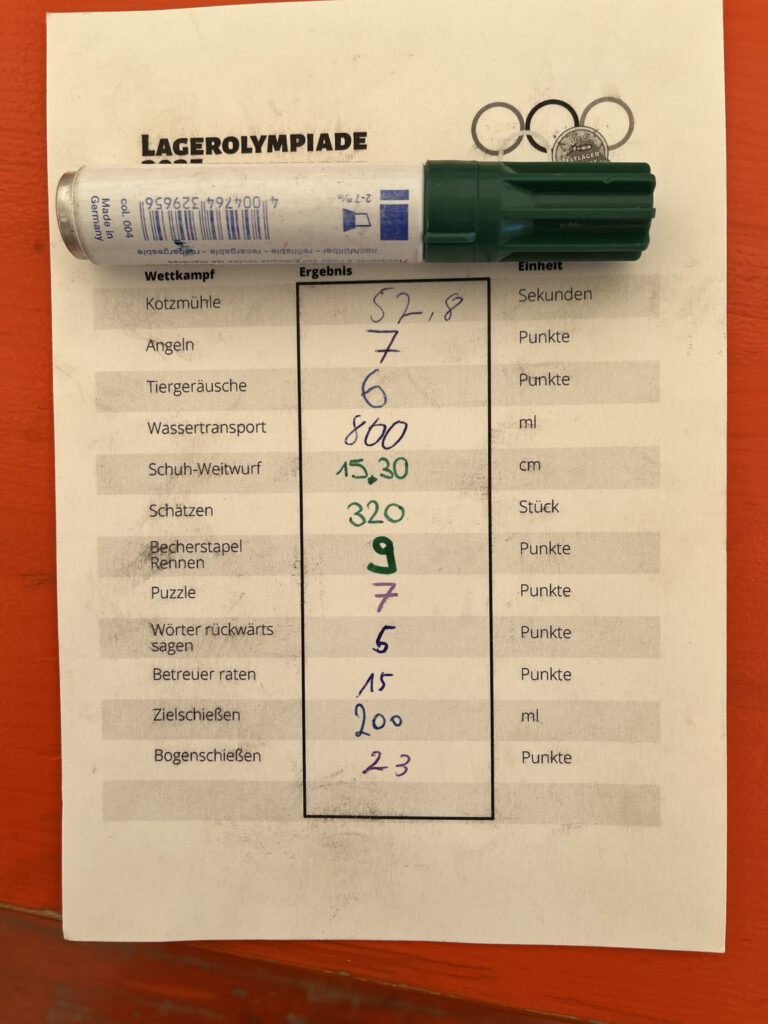 LAGEROLYMPIADE
4 004764 329656
col. 004
Made in
Germany
2-7 mm
nachfüllbar - refillable - recargable - rechargeable
Wettkampf Ergebnis Einheit
Kotzmühle 52,8 Sekunden
Angeln 7 Punkte
Tiergeräusche 6 Punkte
Wassertransport 800 ml
Schuh-Weitwurf 15,30 cm
Schätzen 320 Stück
Becherstapel
Rennen 9 Punkte
Puzzle 7 Punkte
Wörter rückwärts
sagen 5 Punkte
Betreuer raten 15 Punkte
Zielschießen 200 ml
Bogenschießen 23 Punkte